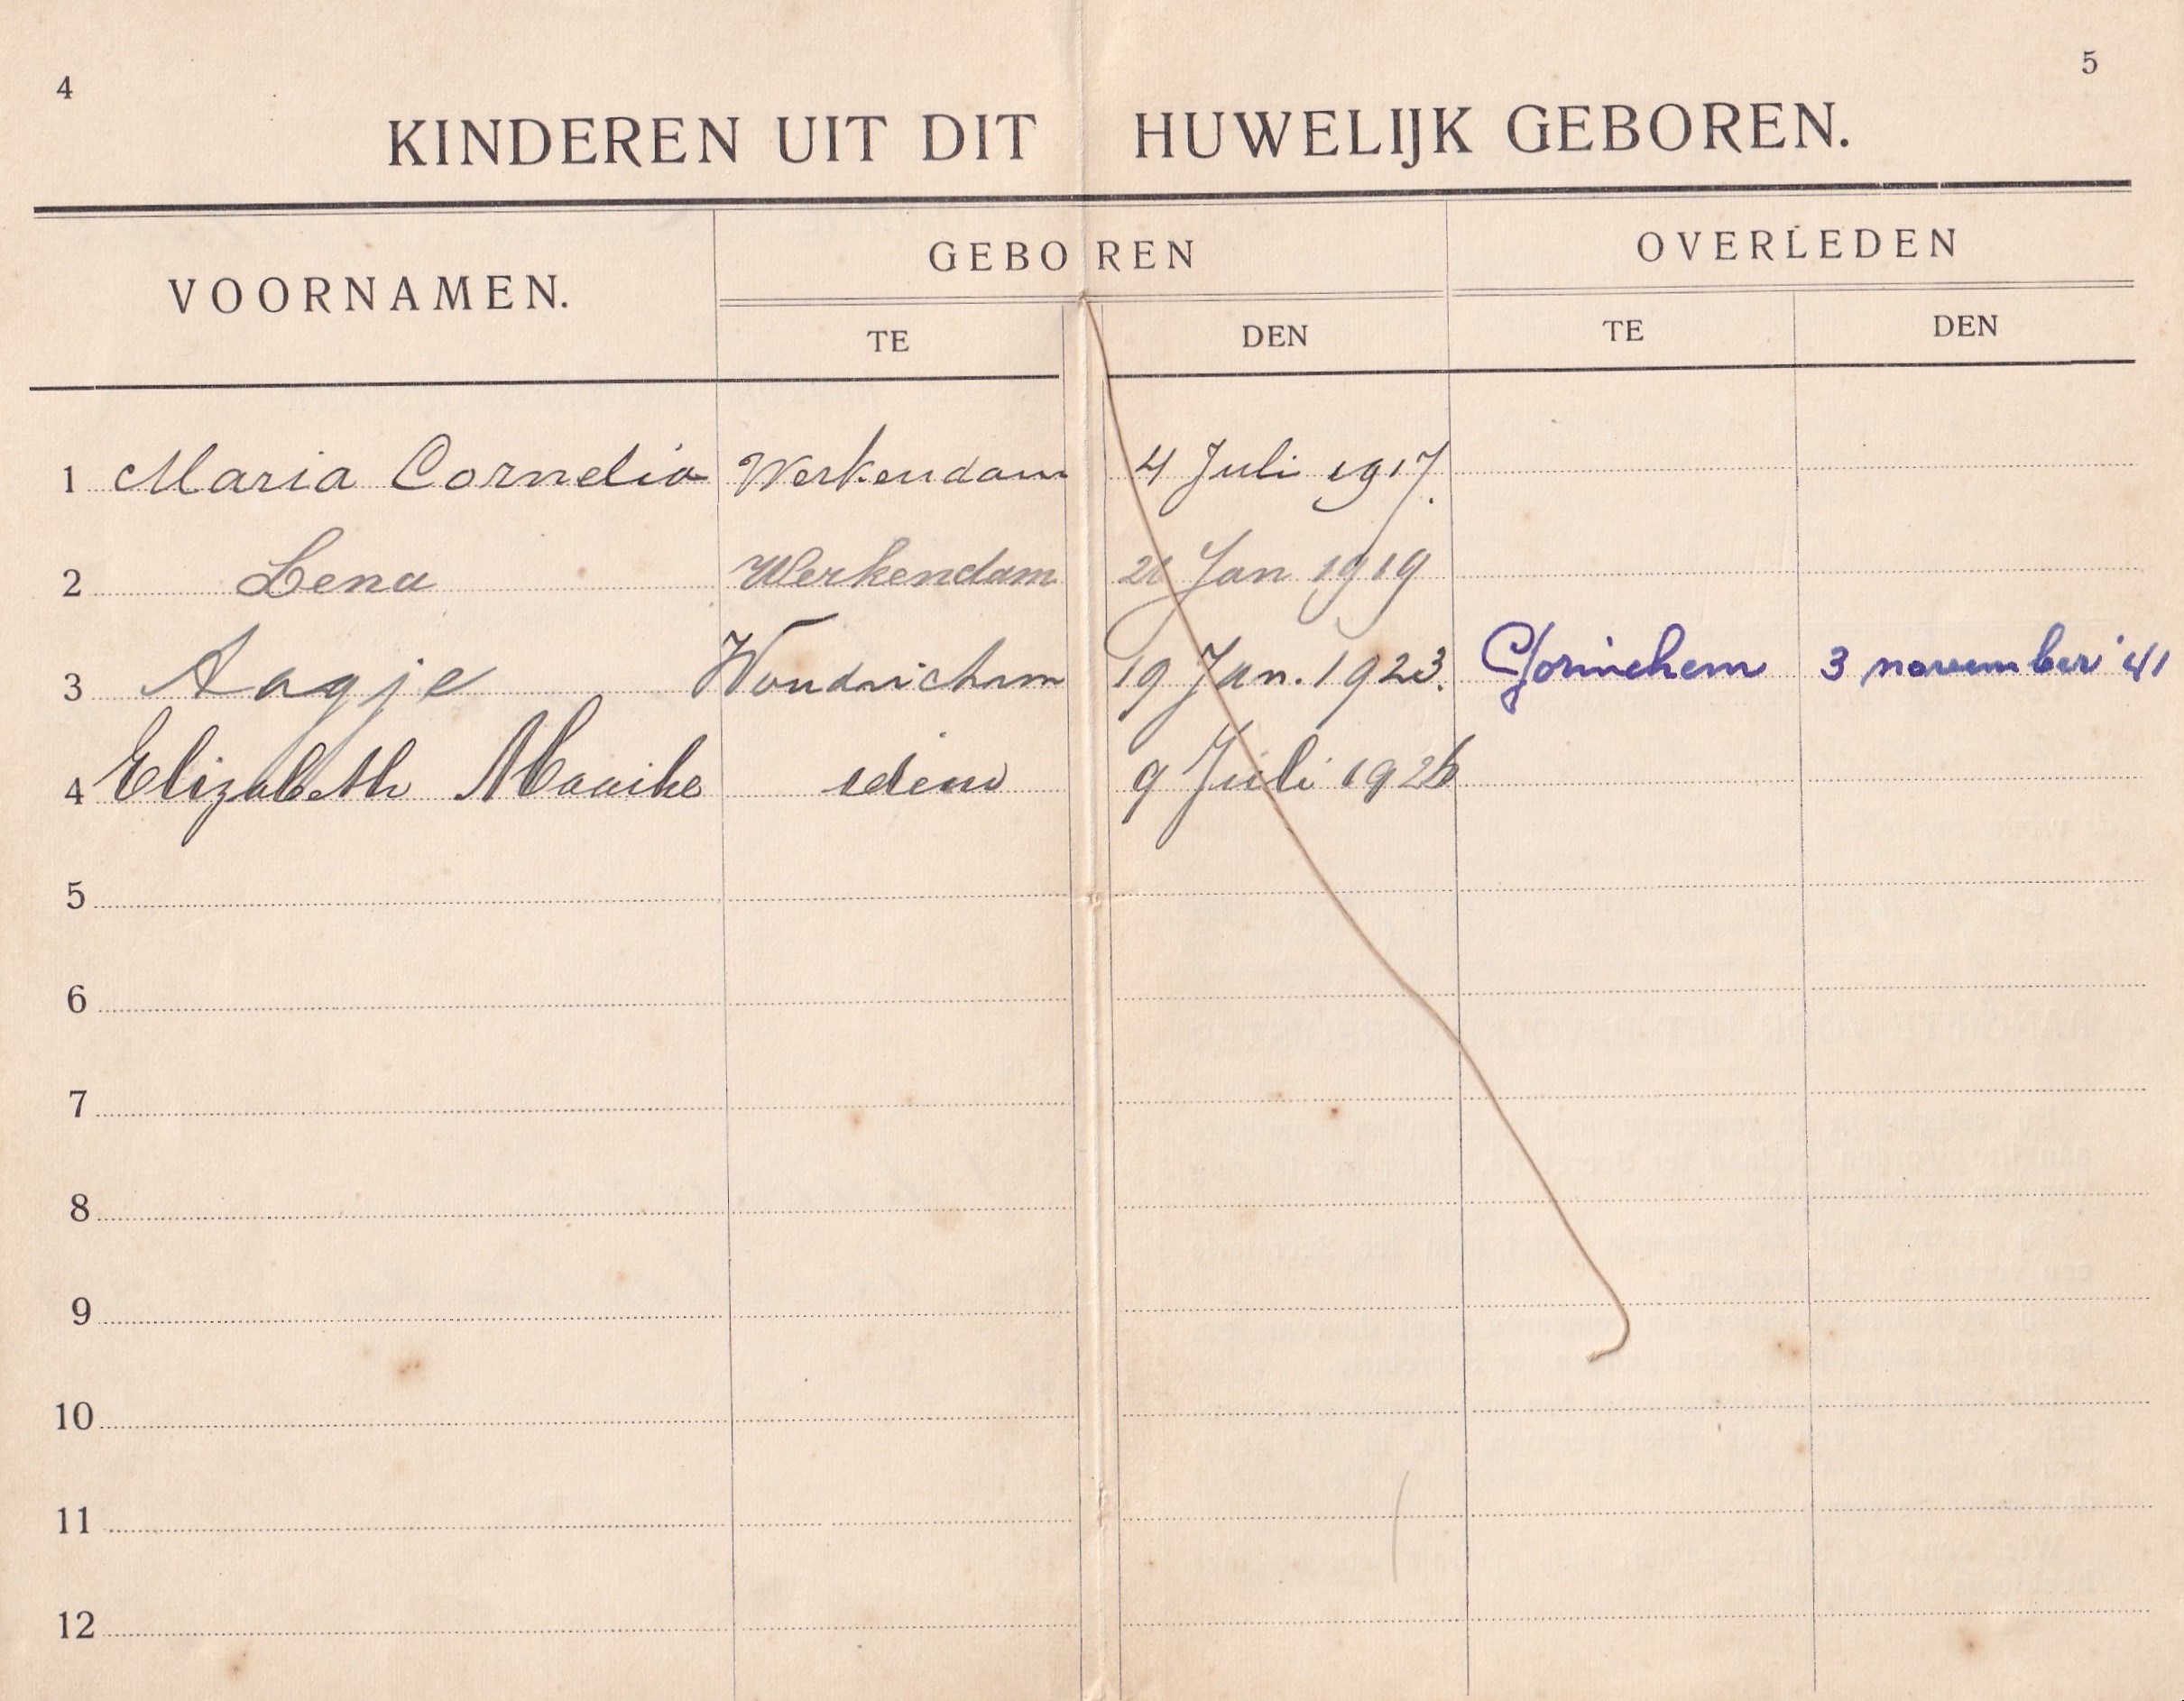 4
5
KINDEREN UIT DIT HUWELIJK GEBOREN.
VOORNAMEN.
GEBOREN
OVERLEDEN
TE
DEN
TE
DEN
1 Maria Cornelia Werkendam 4 Juli 1917.
2 Lena Werkendam Jan 1919
3 Aagje Woudrichem 19 Jan. 1923. Gorinchem 3 november '41
4 Elizabeth Maaike idem 9 Juli 1926
5
6
7
8
9
10
11
12